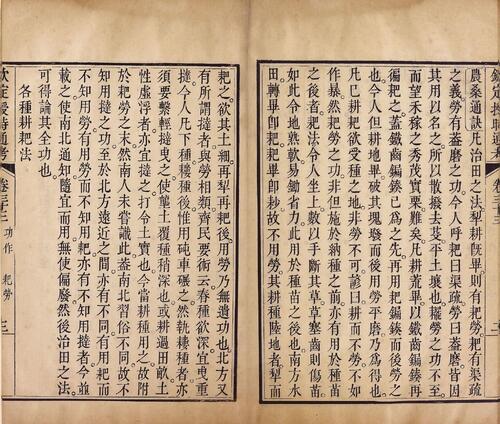 定授時通考 卷三十三
農桑通訣凡治田之法犁耕旣畢則有耙勞耙有渠疏
之義勞有蓋磨之功今人呼耙曰渠疏勞曰蓋磨皆因
其用以名之所以散撥去芟平土壤也耰勞之功不至
而望禾稼之秀茂實栗難矣凡耕荒畢以鐵齒𨫒鏉再
徧耙之蓋鐵齒𨫒鏉已爲之先再用耙𨫒鏉而後勞之
也今人但耕地畢破其塊垡而後用勞平磨乃爲得也
凡已耕耙欲受種之地非勞不可諺曰耕而不勞不如
作暴然耙勞之功非但施於納種之前亦有用於種苗
之後者耙法令人坐上數以手斷其草草塞齒則傷苗
如此令地熟軟易鋤省力此用於種苗之後也南方水
田轉畢卽耙耙畢卽抄故不用勞其耕種陸地者犁而
耙之欲其土細再犁再耙後用勞乃無遺功也北方又
有所謂撻者與勞相類齊民要術云春種欲深宜曳重
撻今人凡下種耬種後惟用砘車碾之然執耬種者亦
須要繫輕撻曳之使壟土覆種稍深也或耕過田畝土
性虛浮者亦宜撻之打令土實也今當耕種用之故附
於耙勞之末然南人未嘗識此蓋南北習俗不同故不
知用撻之功至於北方遠近之間亦有不同有用耙而
不知用勞有用勞而不知用耙亦有不知用撻者今並
載之使南北通知隨宜而用無使偏廢然後治田之法
可得論其全功也
各種耕耙法
欽定授時通考 卷三十三 功作 耙勞 三